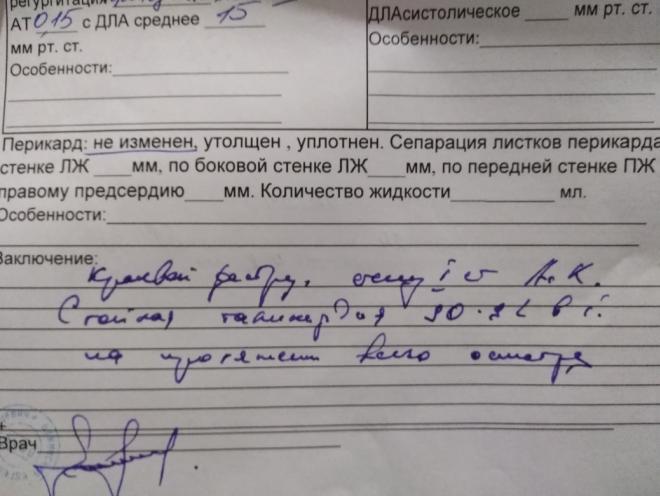 регургитация
АТ 015 с ДЛА среднее 15
мм рт. ст.
Особенности:
ДЛАсистолическое мм рт. ст.
Особенности:
Перикард: не изменен, утолщен , уплотнен. Сепарация листков перикарда
стенке ЛЖ ____мм, по боковой стенке ЛЖ____мм, по передней стенке ПЖ
правому предсердию____мм. Количество жидкости__________ мл.
Особенности:
Заключение:
Краевой I ст А.К.
Стойкая тахикардия в
на протяжении всего осмотра
Врач